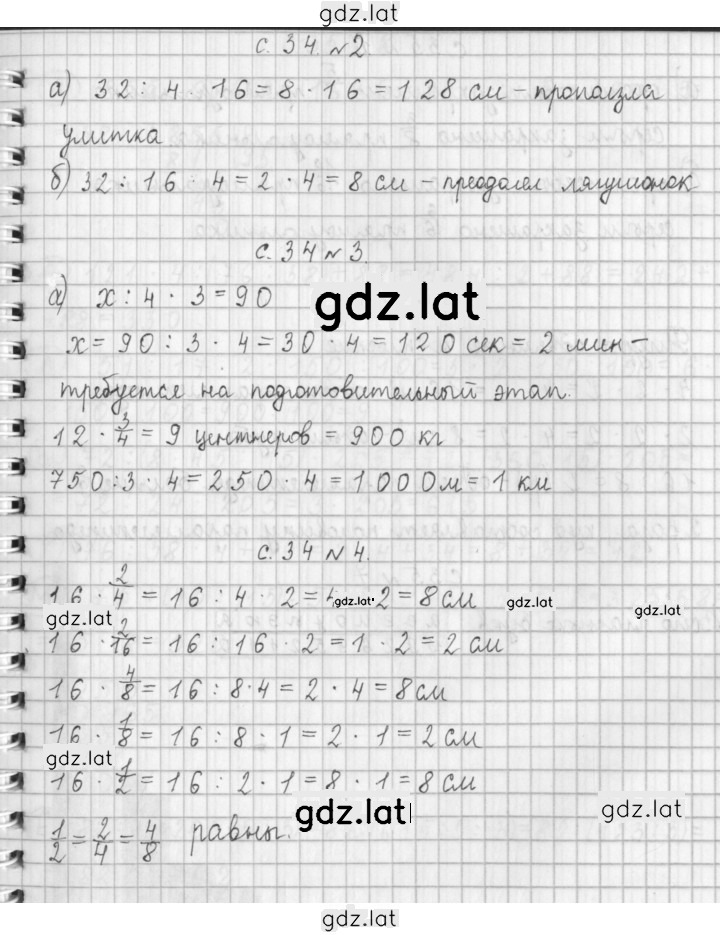 gdz.lat
с. 34. №2
а) 32 : 4 · 16 = 8 · 16 = 128 см – проползла
улитка
б) 32 : 16 · 4 = 2 · 4 = 8 см – преодолел лягушонок
с. 34 № 3.
а) x : 4 · 3 = 90
gdz.lat
x = 90 : 3 · 4 = 30 · 4 = 120 сек = 2 мин –
требуется на подготовительный этап.
12 · 3/4 = 9 центнеров = 900 кг
750 : 3 · 4 = 250 · 4 = 1000 м = 1 км
с. 34 № 4.
16 · 2/4 = 16 : 4 · 2 = 4 · 2 = 8 см
gdz.lat gdz.lat gdz.lat gdz.lat
16 · 2/16 = 16 : 16 · 2 = 1 · 2 = 2 см
16 · 4/8 = 16 : 8 · 4 = 2 · 4 = 8 см
16 · 1/8 = 16 : 8 · 1 = 2 · 1 = 2 см
gdz.lat
16 · 1/2 = 16 : 2 · 1 = 8 · 1 = 8 см
gdz.lat gdz.lat
1/2 = 2/4 = 4/8 равны.
gdz.lat